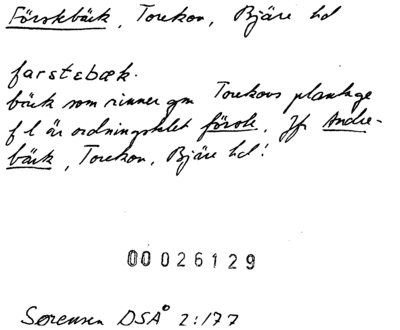 Förstebäck, Torekov, Bjäre hd
farstɛbæk.
bäck som rinner gm Torekovs plantage
f l är ordningstalet först. Jfr Andre-
bäck, Torekov, Bjäre hd!
00026129
Sørensen DSÅ 2:177